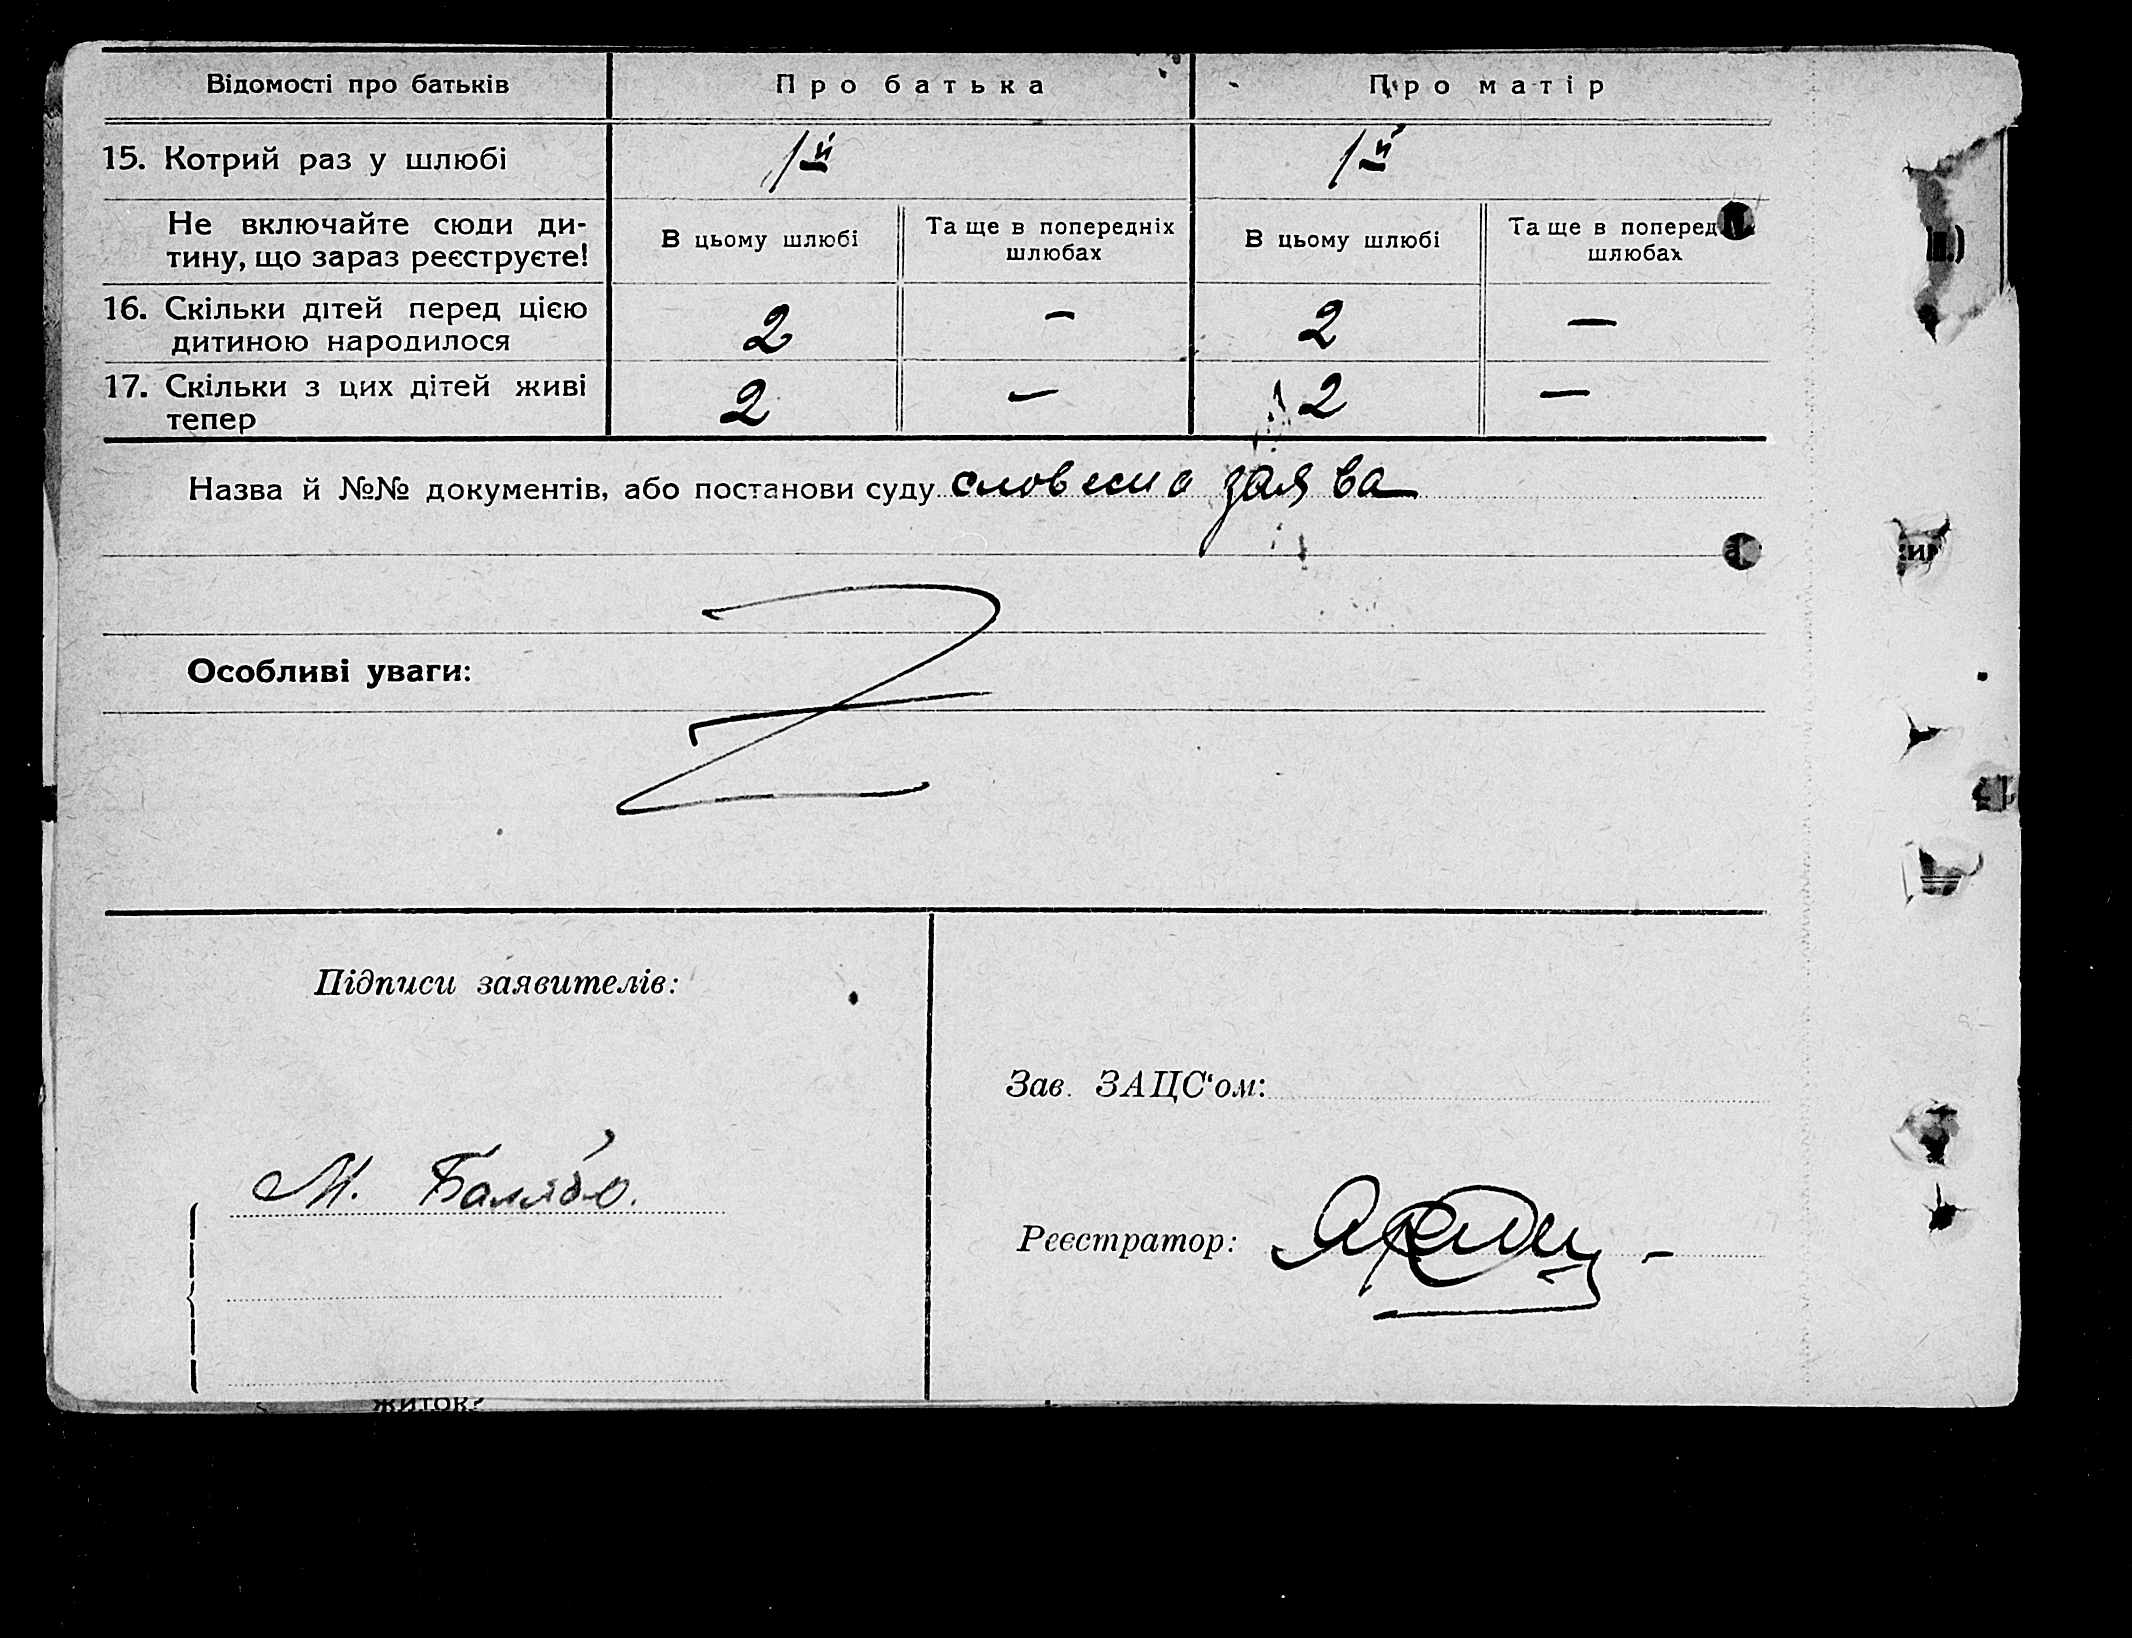 Відомості про батьків Про батька Про матір
15. Котрий раз у шлюбі 1й 1й
Не включайте сюди ди-
тину, що зараз реєструєте!
В цьому шлюбі Та ще в попередніх
шлюбах
В цьому шлюбі Та ще в поперед
шлюбах
16. Скільки дітей перед цією
дитиною народилося
2 — 2 —
17. Скільки з цих дітей живі
тепер
2 — 2 —
Назва й №№ документів, або постанови суду словесна заява
Особливі уваги:
Підписи заявителів:
Зав. ЗАЦС‘ом:
М.
Реєстратор:
житок?